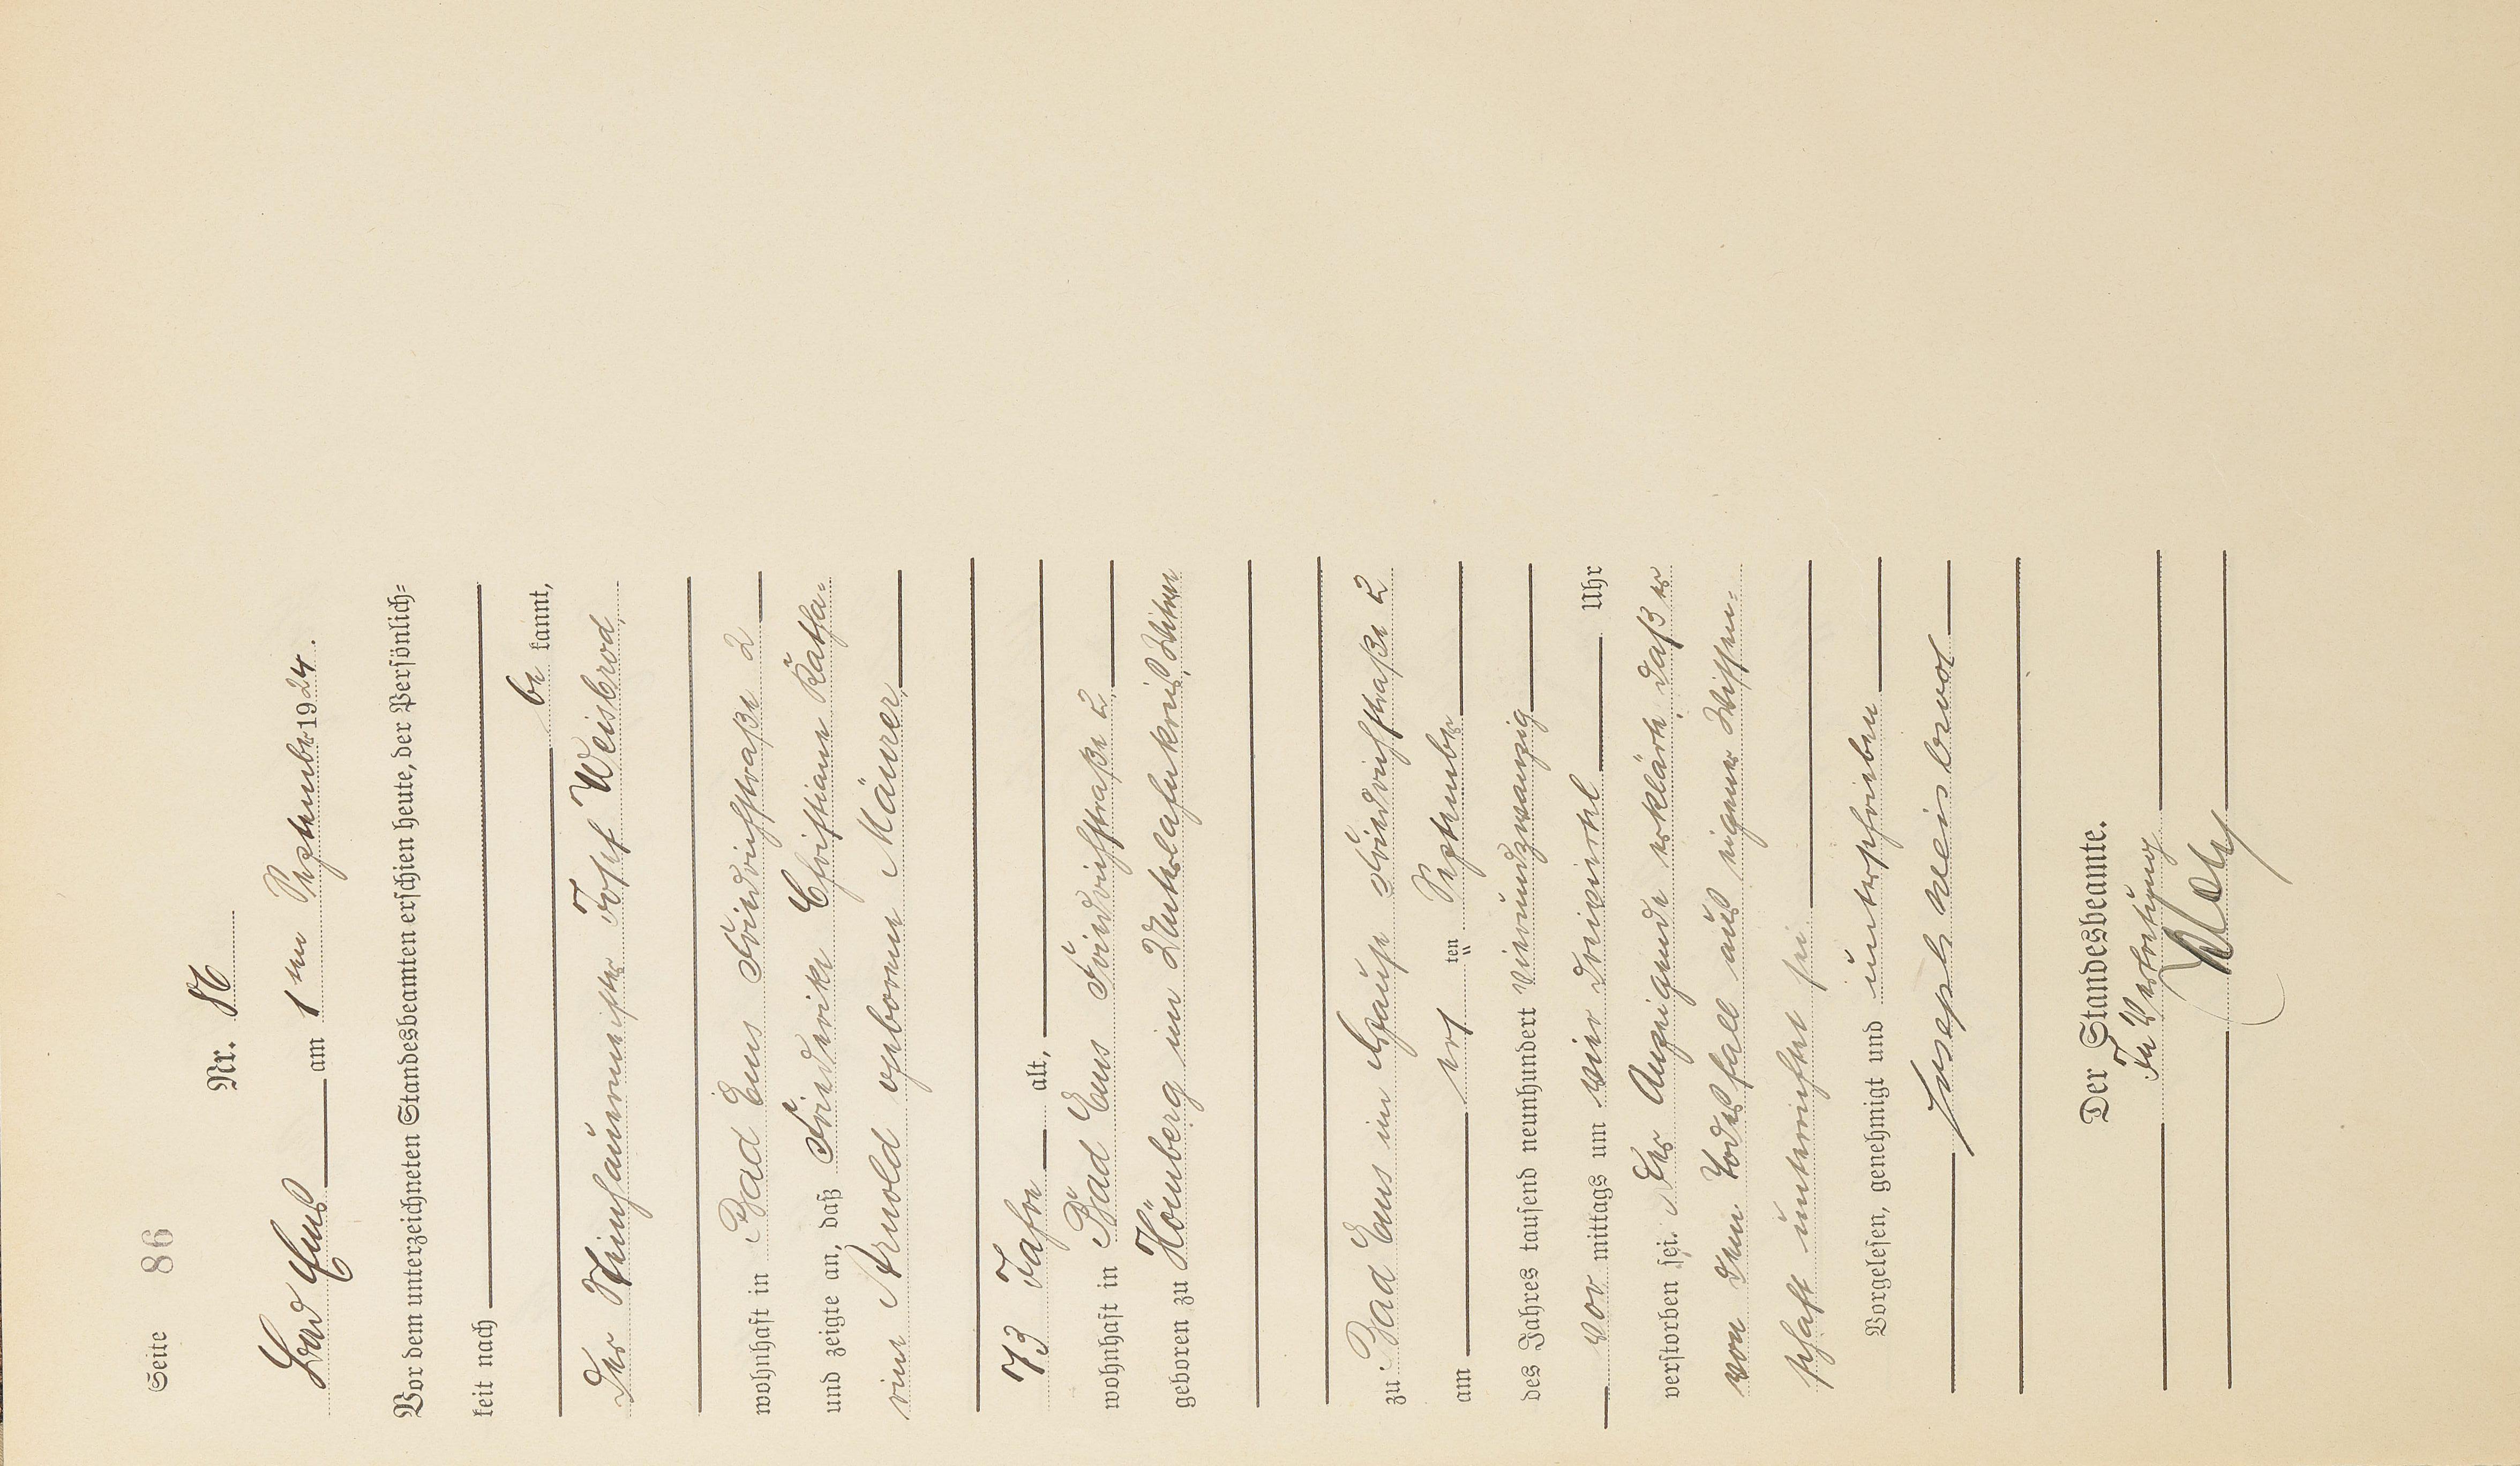 Seite 86
Nr. 86
Bad Ems am 1ten September 1924.
Vor dem unterzeichneten Standesbeamten erschien heute, der Persönlich-
keit nach
be kannt,
der Steinhauermeister Josef Weisbrod,
wohnhaft in Bad Ems Friedrichstraße 2
und zeigte an, daß Friederike Christiane Katha-
rine Arnold geborene Mäurer,
73 Jahre alt,
wohnhaft in Bad Ems Friedrichstraße 2,
geboren zu Hömberg im Unterlahnkreis, Witwe
zu Bad Ems im Hause Friedrichstraße 2
am ersten September
des Jahres tausend neunhundert vierundzwanzig
vor mittags um vier dreiviertel Uhr
verstorben sei. Der Anzeigende erklärte, daß er
von dem Todesfall aus eigener Wissen-
schaft unterrichtet sei.
Vorgelesen, genehmigt und unterschrieben
Joseph Weisbrod
Der Standesbeamte.
In Vertretung